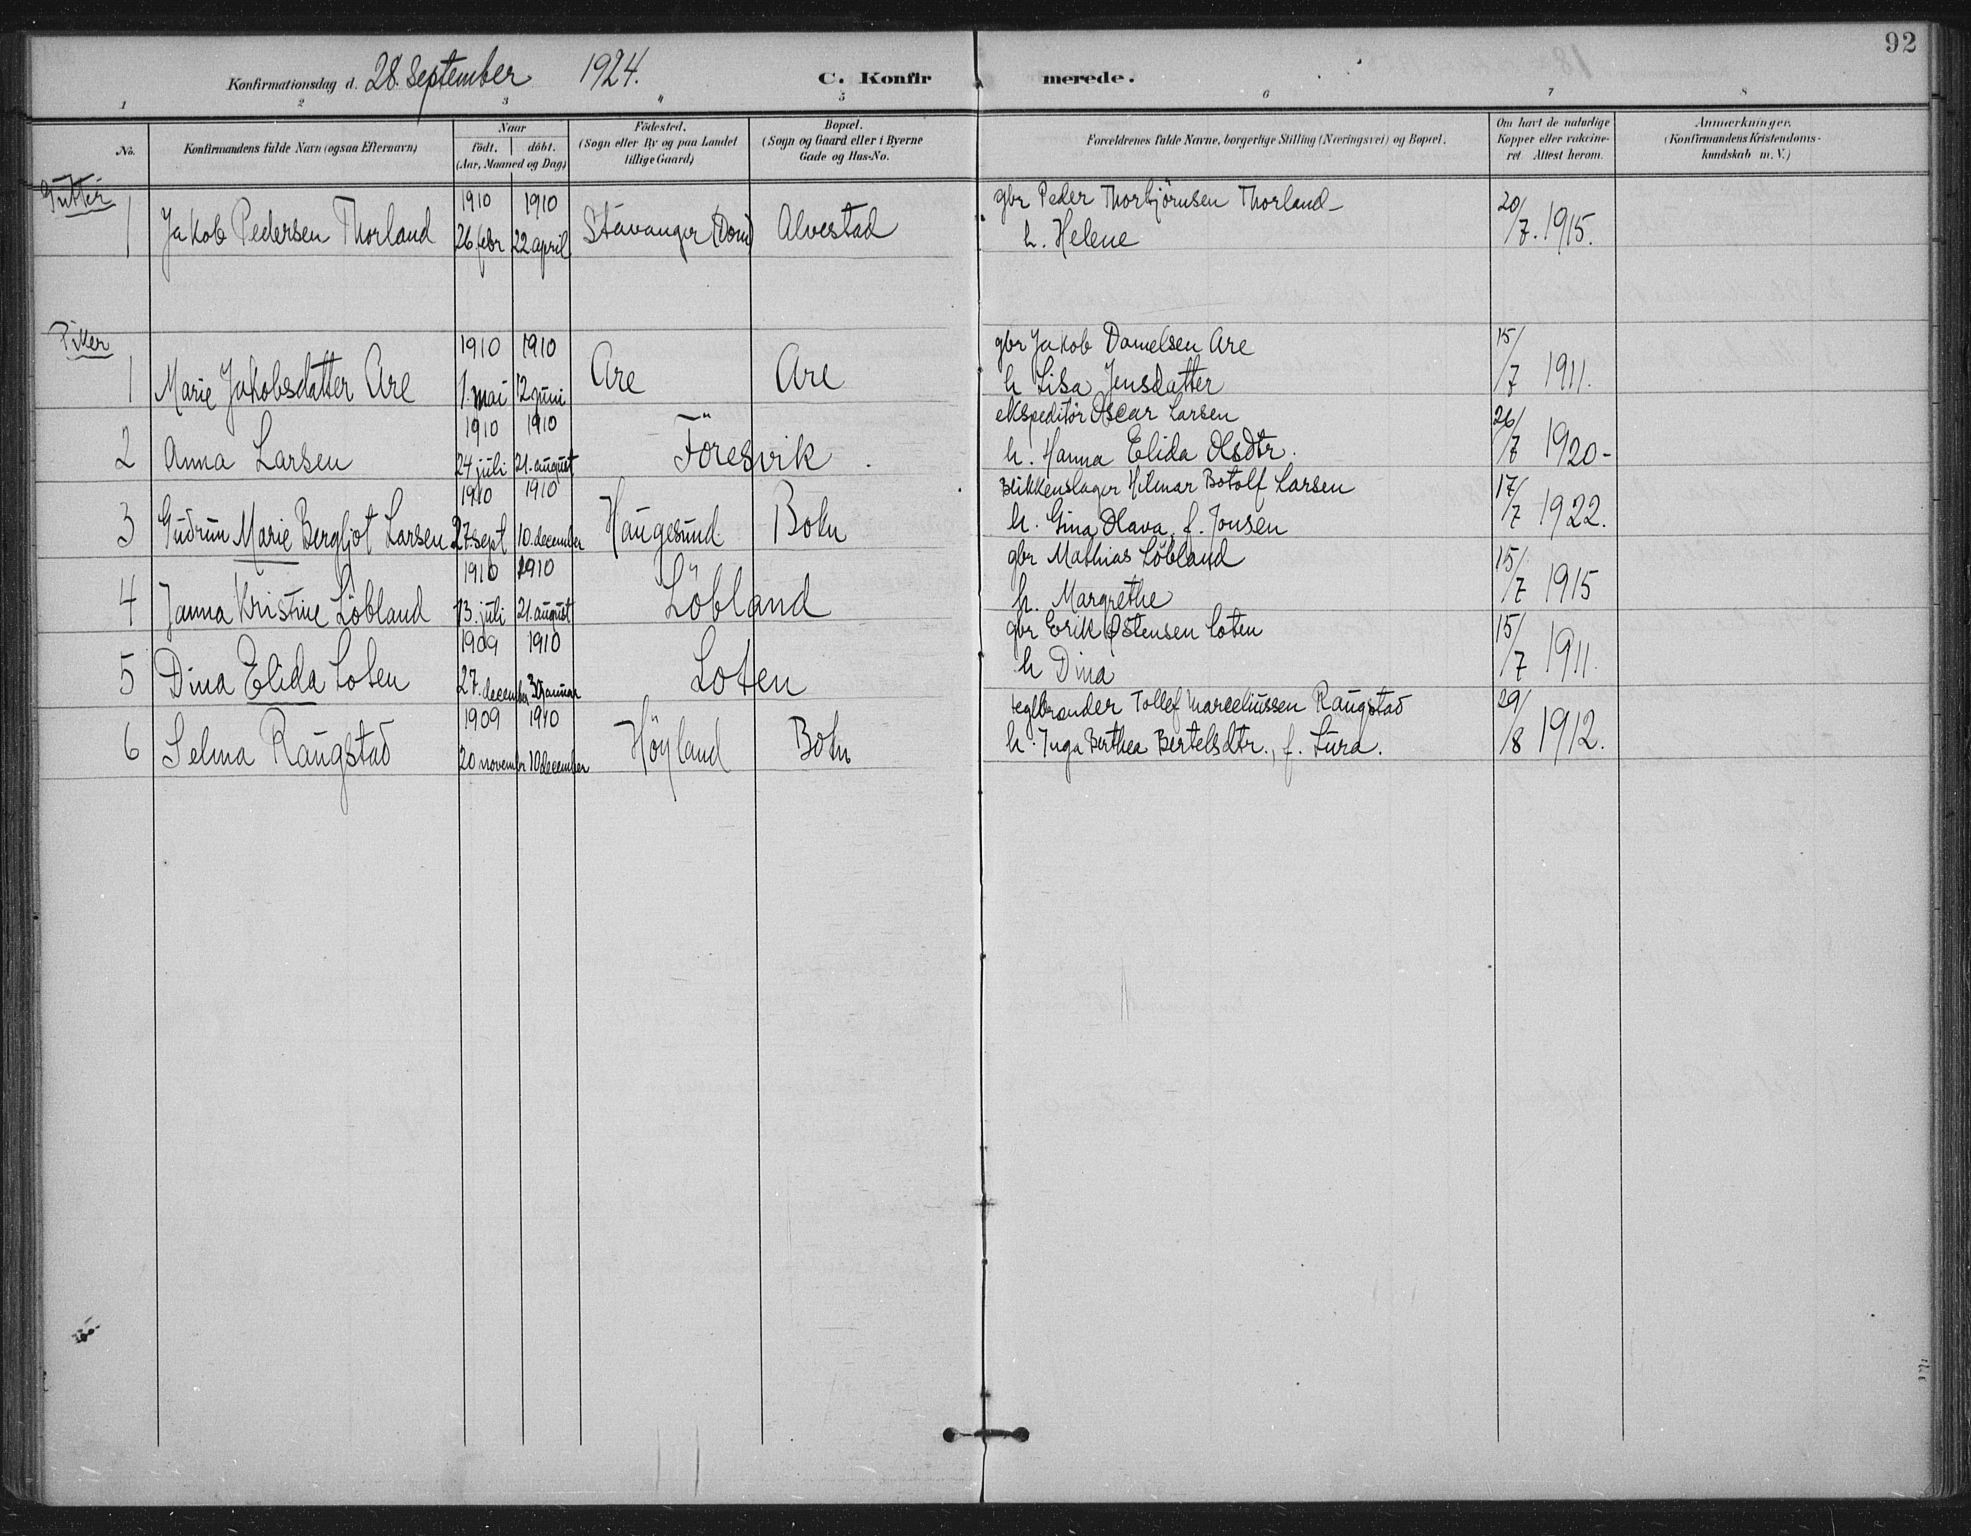 92
Konfirmationsdag d. 28. September 1924. C. Konfirmerede.
1 2 3 " 5 6 7 8
No. Konfirmandens fulde Navn (ogsaa Efternavn) Naar födt, döbt. (Aar, Maaned og Dag) Födested. (Sogn eller By og paa Landet tillige Gaard) Bopæl. (Sogn og Gaard eller i Byerne Gade og Hus-No. Forældrenes fulde Navne, borgerlige Stilling (Næringsvei) og Bopæl. Om havt de naturlige Kopper eller vakcineret. Attest herom. Anmærkninger. (Konfirmandens Kristendomskundskab m. V.)
Gutter
1910 1910 gbr Peder Thorbjörnsen Thorland 20/7. 1915.
1 Jakob Pedersen Thorland 26 febr 22 april Stavanger (Dom) Alvestad h. Helene
Piker
1910 1910 gbr Jakob Danielsen Are 15/7 1911.
1 Marie Jakobsdatter Are 1. mai 12 juni Are Are h Lisa Jensdatter
1910 1910 ekspeditör Oscar Larsen 26/7 1920-
2 Anna Larsen 24 juli 21. august Föresvik h. Hanna Elida Olsdtr.
1910 1910 Blikkenslager Hilmar Botolf Larsen 17/7 1922.
3 Gudrun Marie Bergljot Larsen 27. sept 10. december Haugesund Bokn h. Gina Olava, f. Jonsen
1910 1910 gbr Mathias Löbland 15/7 1915
4 Janna Kristine Löbland 13. juli 21. august Löbland h. Margrethe
1909 1910 gbr Erik Østensen Loten 15/7 1911.
5 Dina Elida Loten 27. december januar Loten h Dina
1909 1910 teglbrænder Tollef Marceliussen Raugstad 29/8 1912.
6 Selma Raugstad 20 november 10 december Höyland Bokn h. Inga Berthea Bertelsdtr., f. Lura.